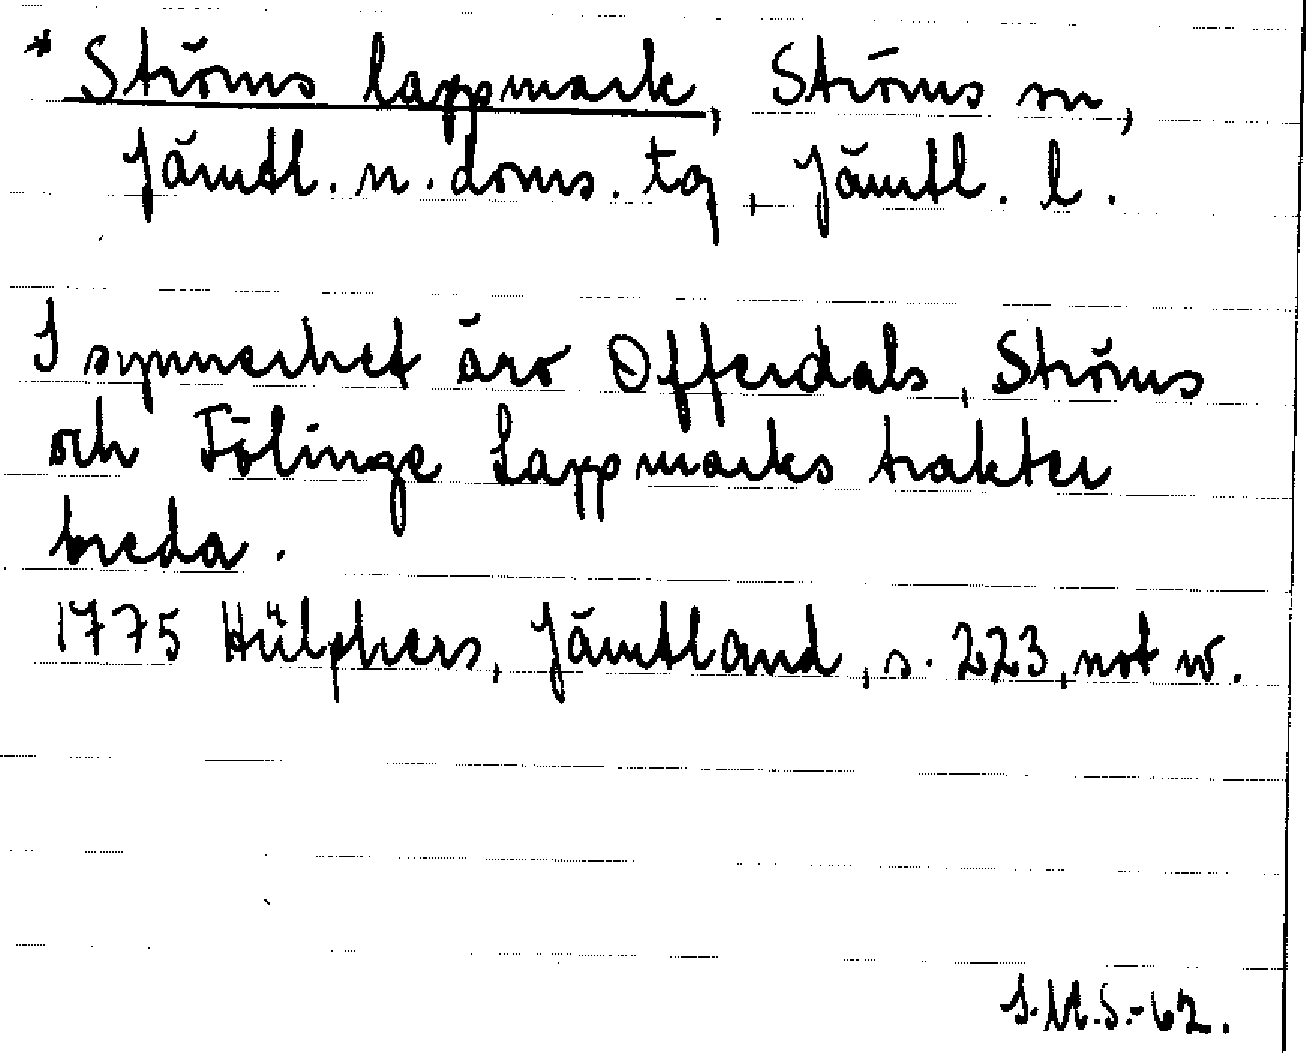 * Ströms lappmark, Ströms sn,
Jämtl. n. doms. tg, Jämtl. l.
I synnerhet äro Offerdals, Ströms
och Fölinge Lappmarks trakter
breda.
1775 Hülphers, Jämtland, s. 223, not w.
S.M.S.-62.